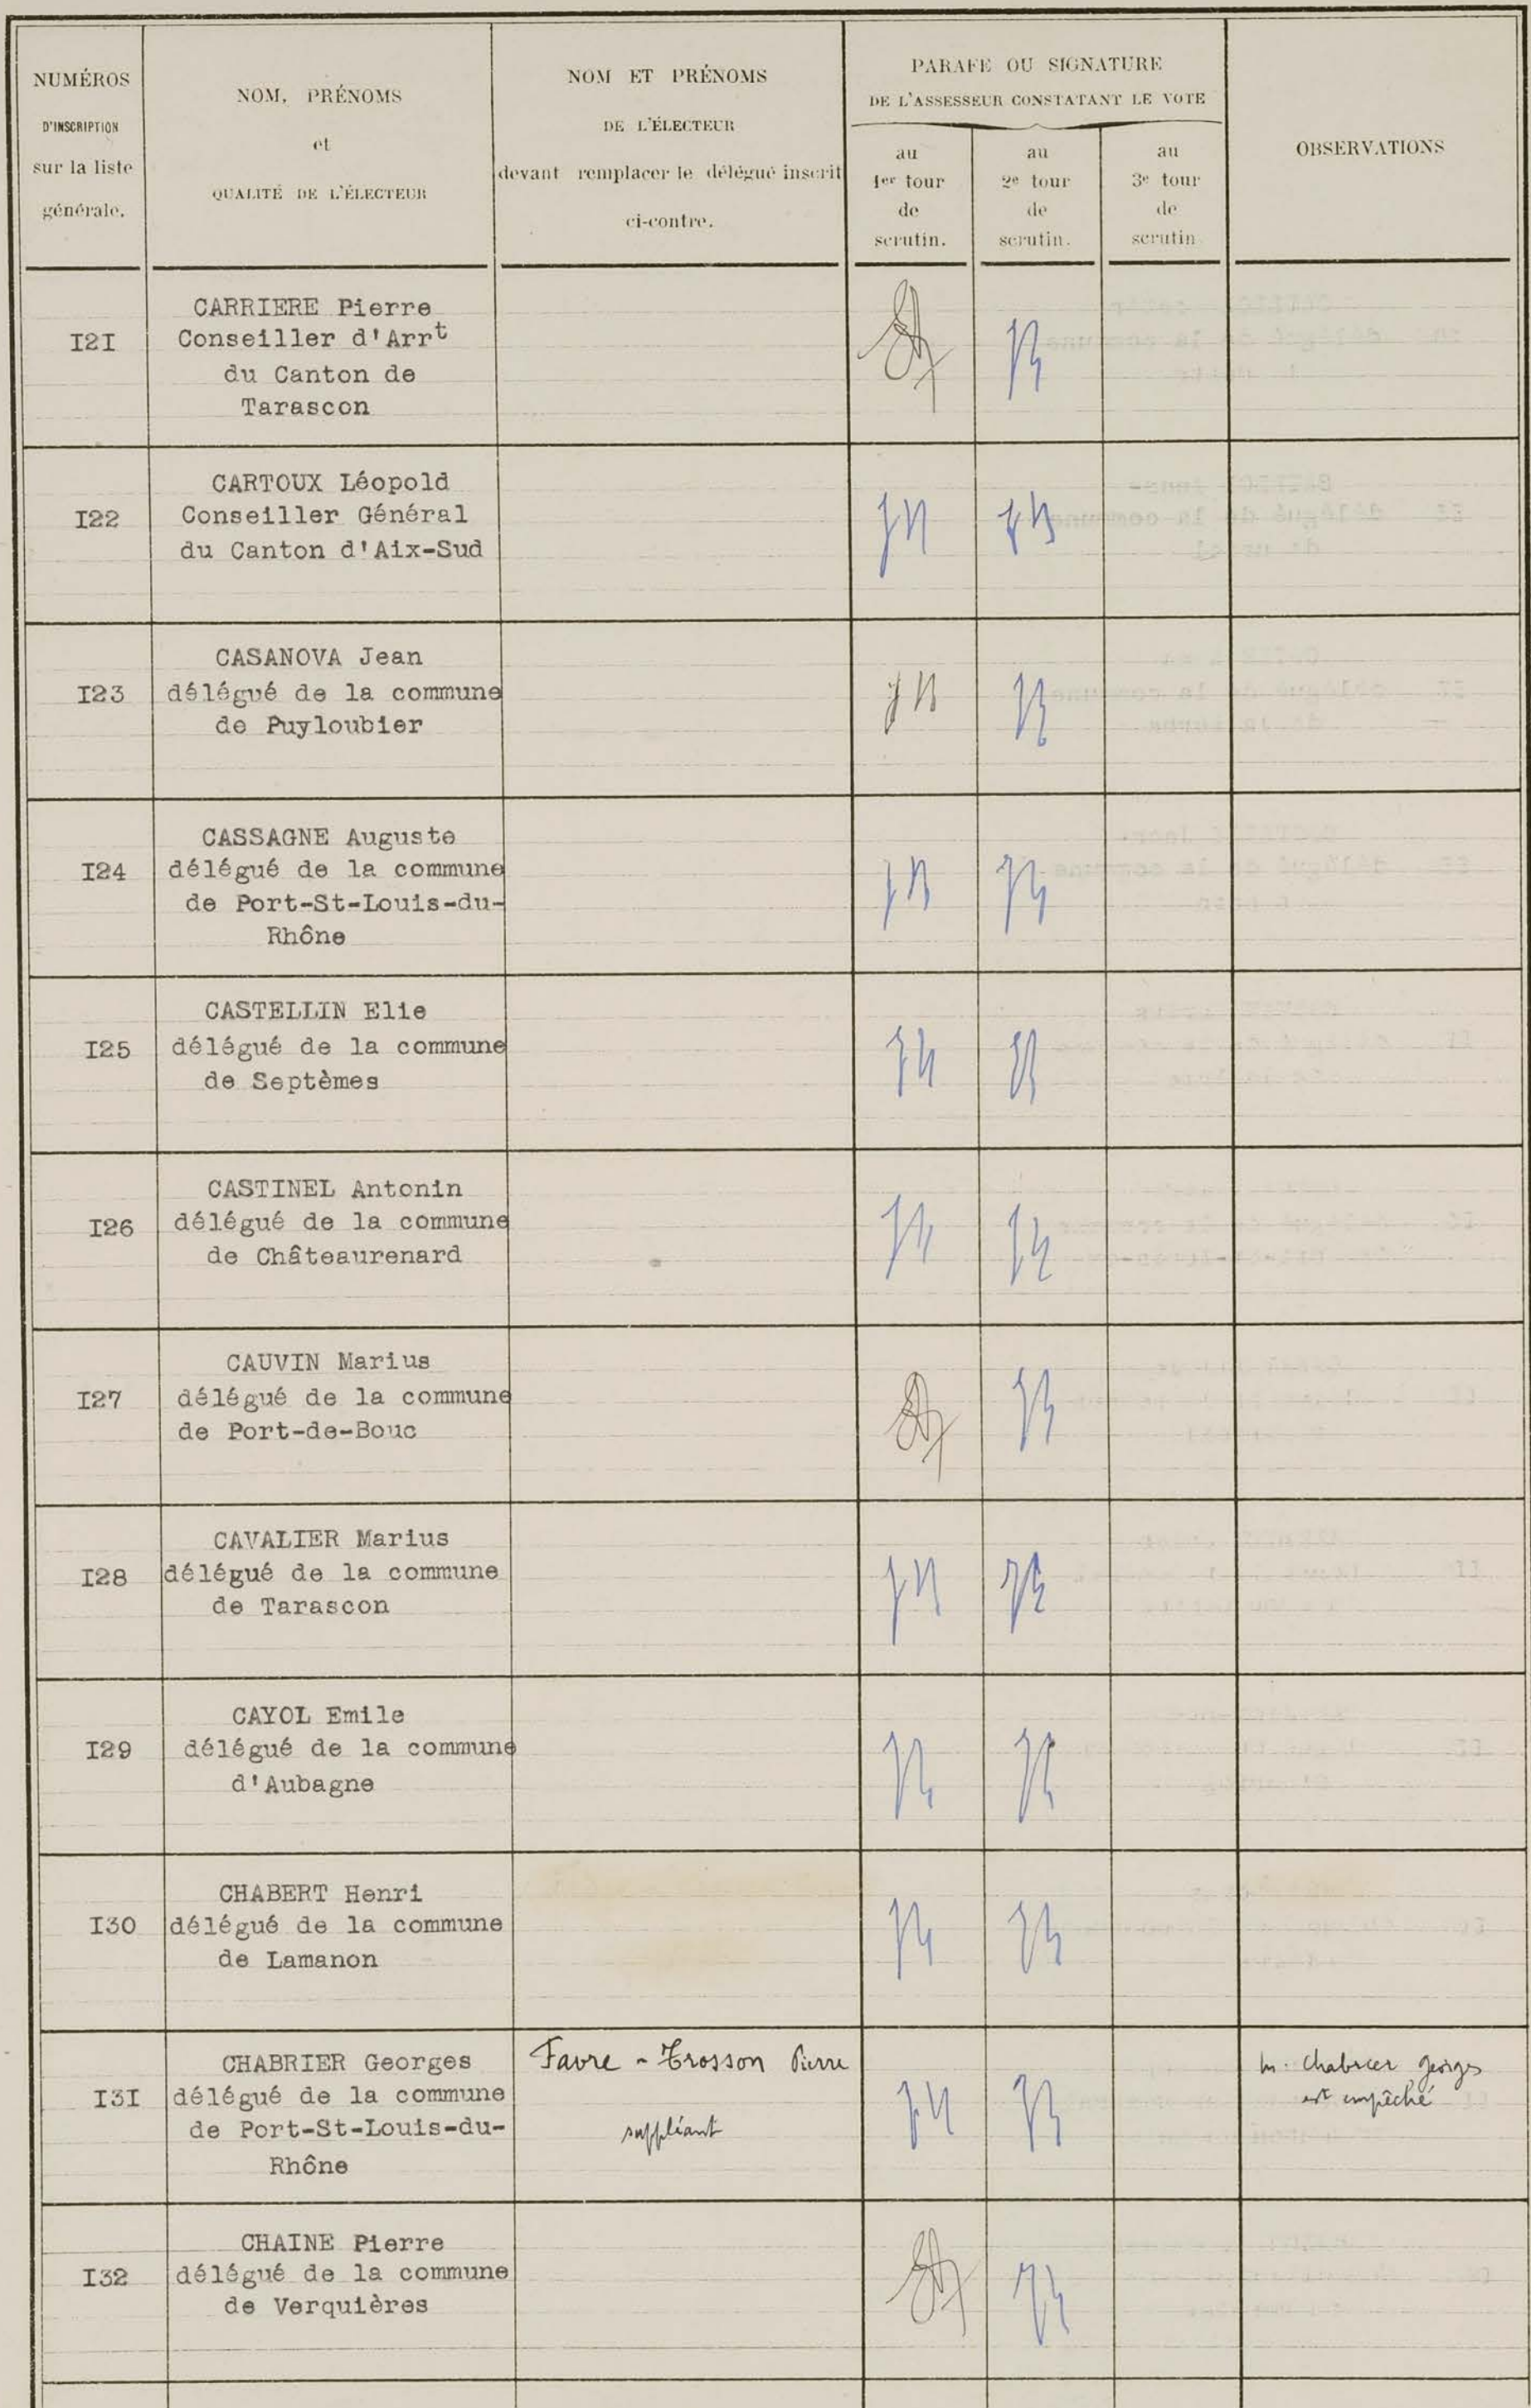 NUMÉROS
D'INSCRIPTION
sur la liste
générale.
NOM, PRÉNOMS
et
QUALITÉ DE L'ÉLECTEUR
NOM ET PRÉNOMS
DE L'ÉLECTEUR
devant remplacer le délégué inscrit
ci-contre.
PARAFE OU SIGNATURE
DE L'ASSESSEUR CONSTATANT LE VOTE
au
1er tour
de
scrutin.
au
2e tour
de
scrutin.
au
3e tour
de
scrutin
OBSERVATIONS
I2I
CARRIERE Pierre
Conseiller d'Arrt
du Canton de
Tarascon
I22
CARTOUX Léopold
Conseiller Général
du Canton d'Aix-Sud
I23
CASANOVA Jean
délégué de la commune
de Puyloubier
I24
CASSAGNE Auguste
délégué de la commune
de Port-St-Louis-du-
Rhône
I25
CASTELLIN Elie
délégué de la commune
de Septèmes
I26
CASTINEL Antonin
délégué de la commune
de Châteaurenard
I27
CAUVIN Marius
délégué de la commune
de Port-de-Bouc
I28
CAVALIER Marius
délégué de la commune
de Tarascon
I29
CAYOL Emile
délégué de la commune
d'Aubagne
I30
CHABERT Henri
délégué de la commune
de Lamanon
I3I
CHABRIER Georges
délégué de la commune
de Port-St-Louis-du-
Rhône
Favre - Trosson Pierre
suppléant
M. Chabrier Georges
est empêché
I32
CHAINE Pierre
délégué de la commune
de Verquières